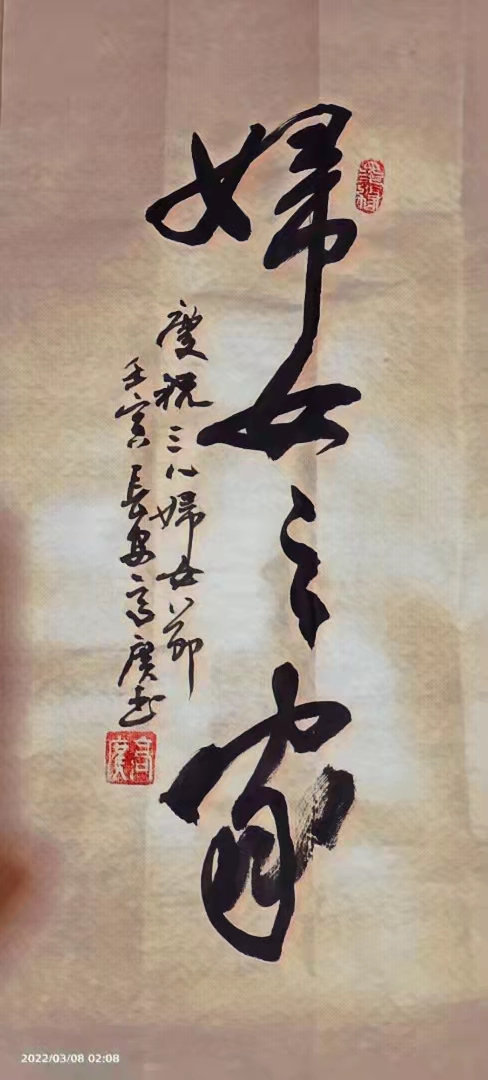 婦女之家
慶祝三八婦女節
壬寅長安高廣書
2022/03/08 02:08